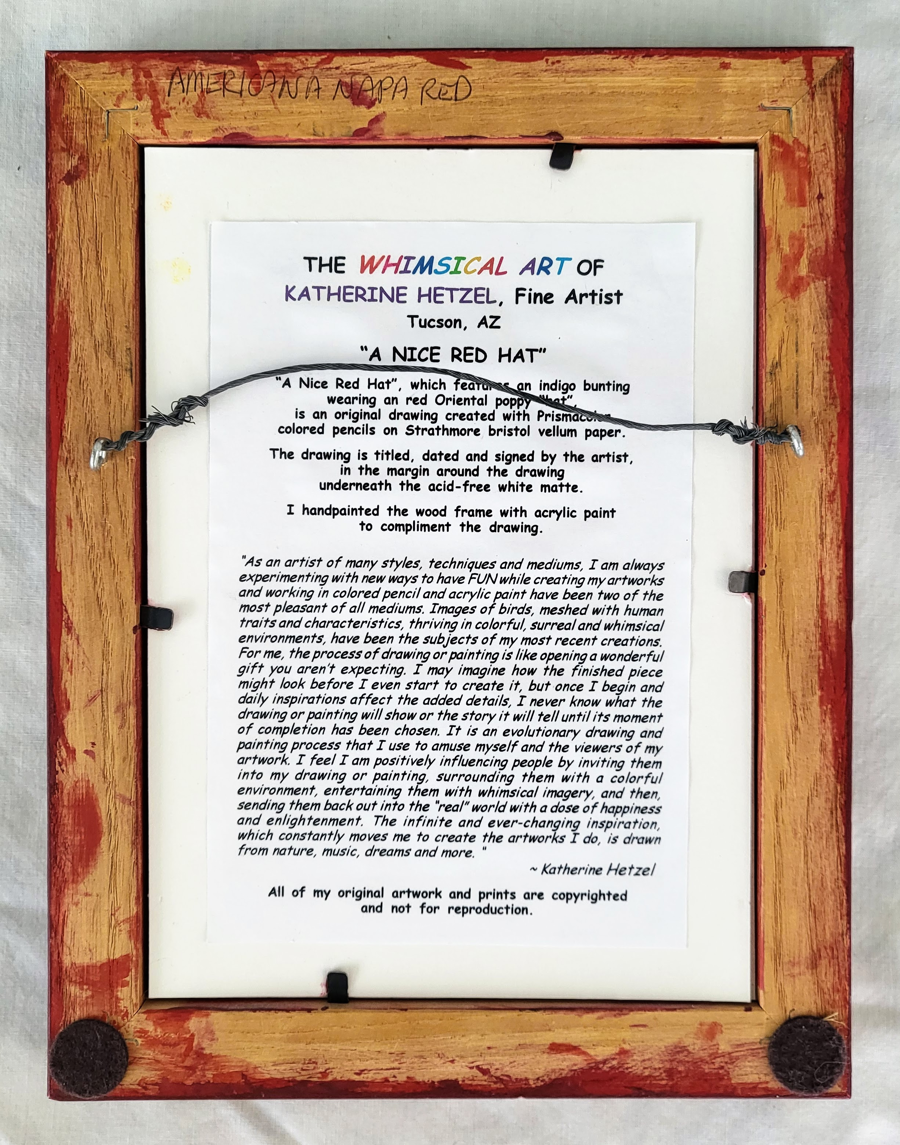 AMERICANA NAPA RED
THE WHIMSICAL ART OF
KATHERINE HETZEL, Fine Artist
Tucson, AZ
"A NICE RED HAT"
"A Nice Red Hat", which features an indigo bunting
wearing an red Oriental poppy "hat",
is an original drawing created with Prismacolor
colored pencils on Strathmore bristol vellum paper.
The drawing is titled, dated and signed by the artist,
in the margin around the drawing
underneath the acid-free white matte.
I handpainted the wood frame with acrylic paint
to compliment the drawing.
"As an artist of many styles, techniques and mediums, I am always
experimenting with new ways to have FUN while creating my artworks
and working in colored pencil and acrylic paint have been two of the
most pleasant of all mediums. Images of birds, meshed with human
traits and characteristics, thriving in colorful, surreal and whimsical
environments, have been the subjects of my most recent creations.
For me, the process of drawing or painting is like opening a wonderful
gift you aren't expecting. I may imagine how the finished piece
might look before I even start to create it, but once I begin and
daily inspirations affect the added details, I never know what the
drawing or painting will show or the story it will tell until its moment
of completion has been chosen. It is an evolutionary drawing and
painting process that I use to amuse myself and the viewers of my
artwork. I feel I am positively influencing people by inviting them
into my drawing or painting, surrounding them with a colorful
environment, entertaining them with whimsical imagery, and then,
sending them back out into the "real" world with a dose of happiness
and enlightenment. The infinite and ever-changing inspiration,
which constantly moves me to create the artworks I do, is drawn
from nature, music, dreams and more. "
~ Katherine Hetzel
All of my original artwork and prints are copyrighted
and not for reproduction.